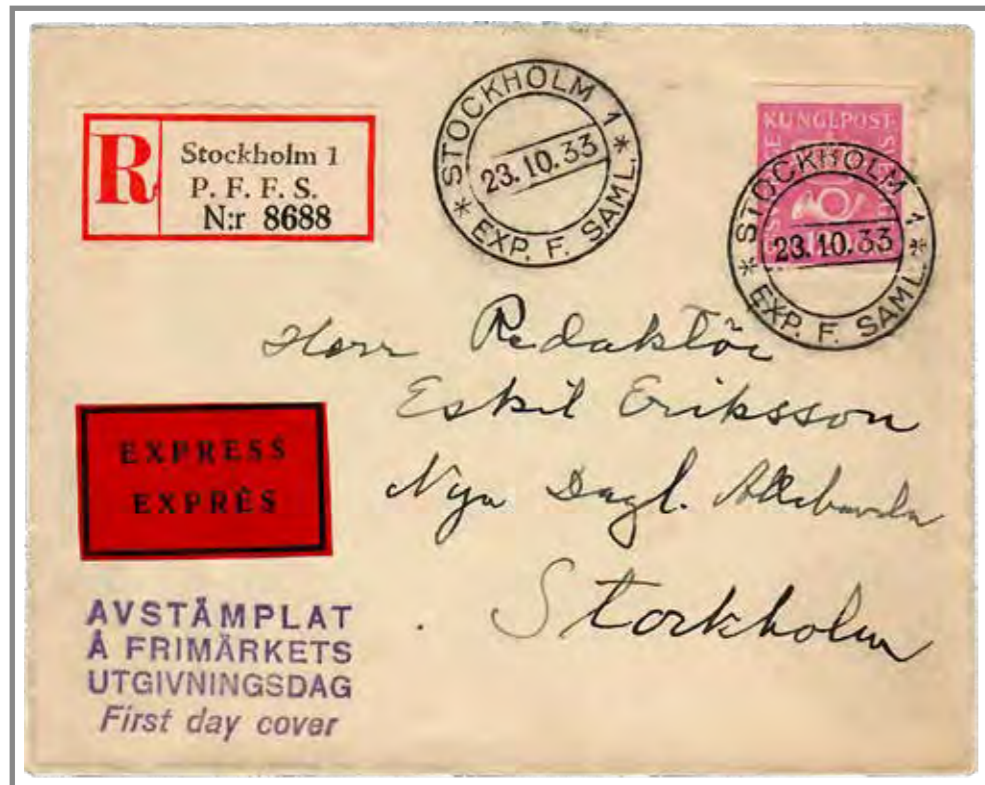 Stockholm 1
P. F. F. S.
N:r 8688
STOCKHOLM 1
23.10.33
* EXP. F. SAML. *
KUNGLPOST-
STOCKHOLM 1
23.10.33
* EXP. F. SAML. *
R
Herr Redaktör
Eskil Eriksson
Nya Dagl. Allehanda
Stockholm
EXPRESS
EXPRÈS
AVSTÄMPLAT
Å FRIMÄRKETS
UTGIVNINGSDAG
First day cover